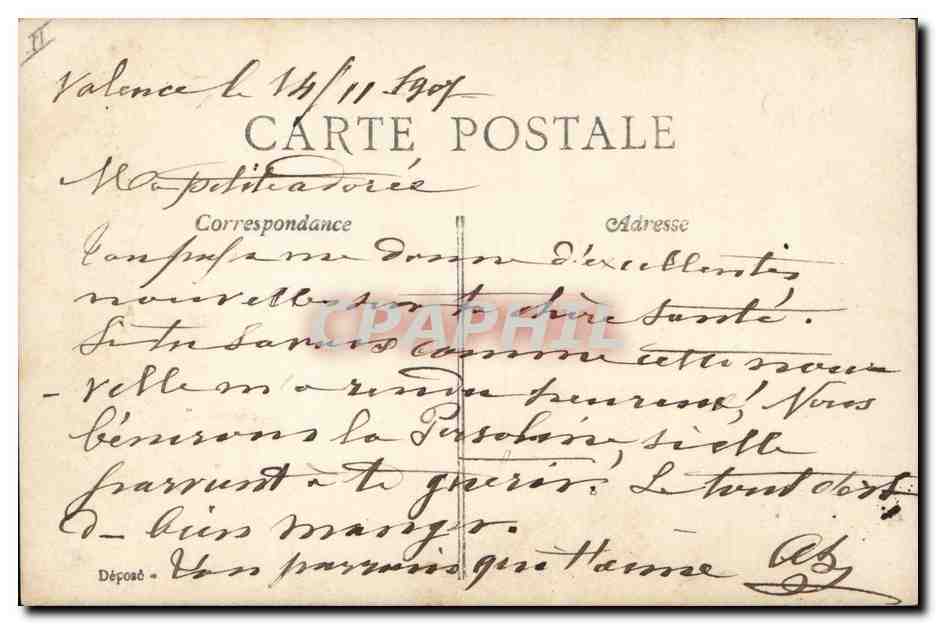 II
Valence le 14/11 1907
CARTE POSTALE
Ma petite adorée
Correspondance
Adresse
Ton papa me donne d'excellentes
nouvelles sur ta chère santé.
CPAPHIL
Si tu savais comme cette nou-
-velle m'a rendu heureux! Nous
bénirons la si elle
parvient à te guérir. Le tout c'est
de bien manger.
Déposé.
Ton parrain qui t'aime